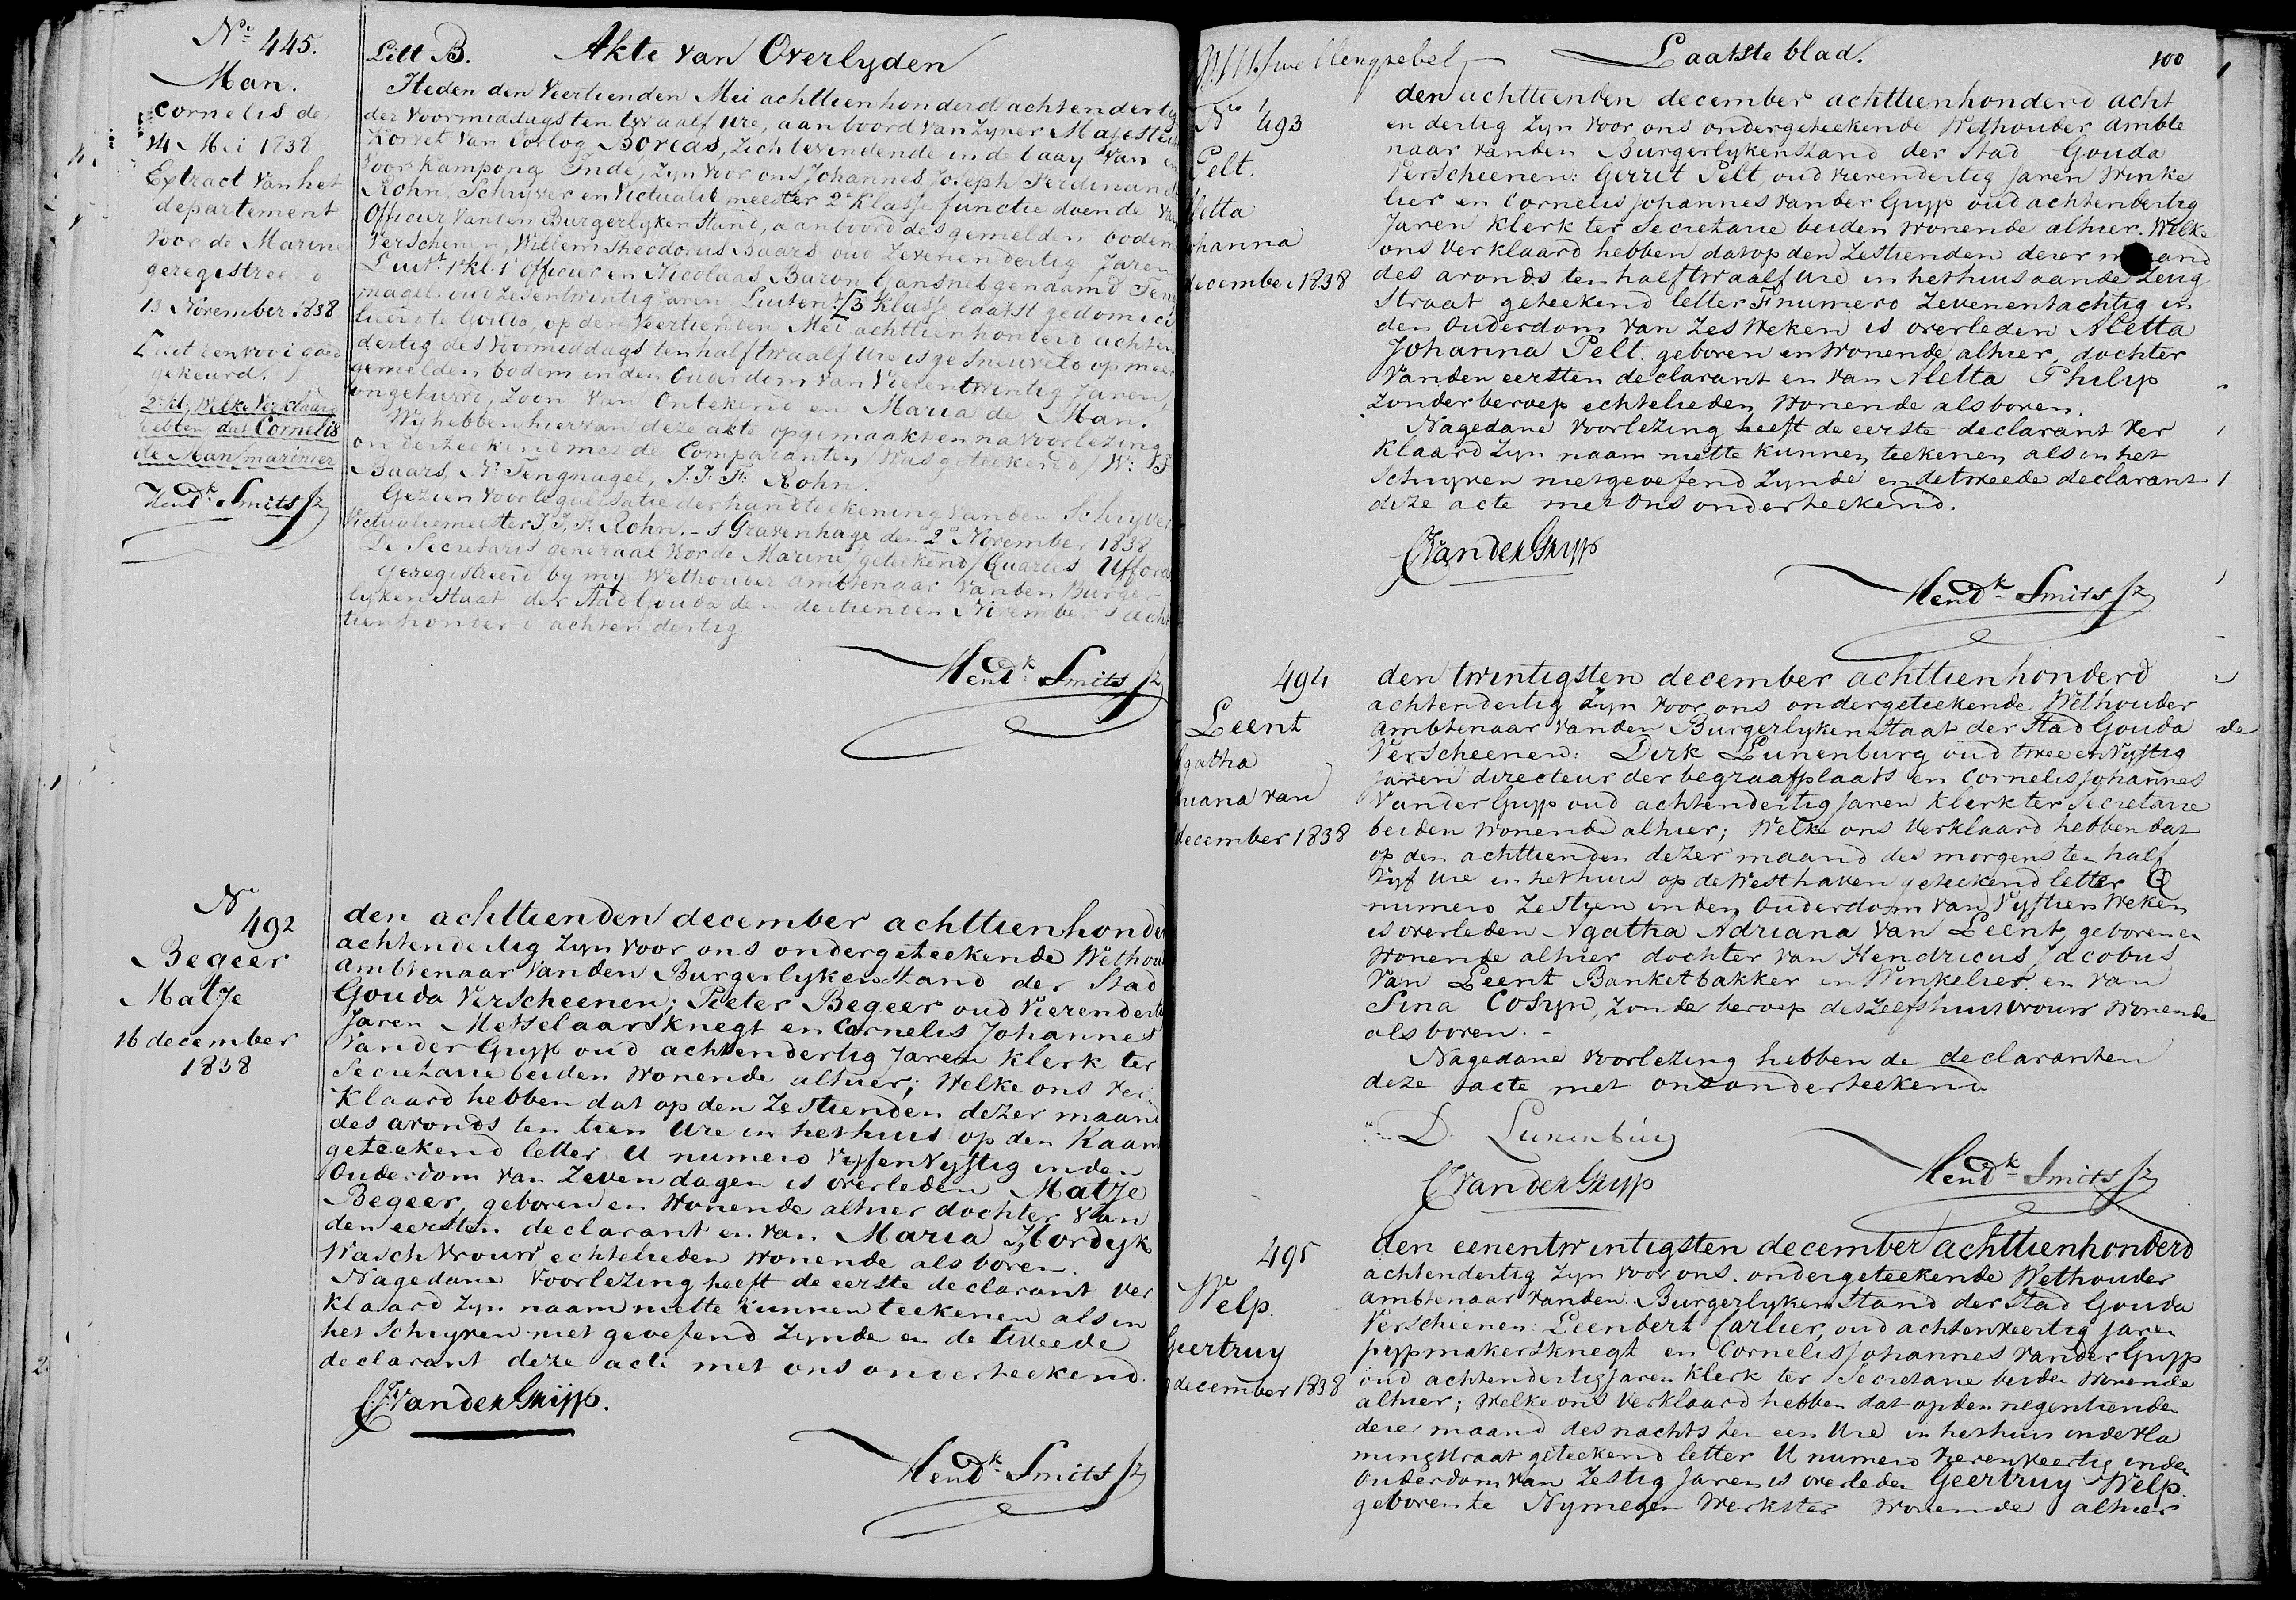 No 445.
Man.
Cornelis de,
14 Mei 1838
Extract van het
departement
voor de Marine
geregistreerd
13 November 1838
[ met renvooi goed
gekeurd.
2e kl, Welke Verklaard
hebben dat Cornelis
de Man marinier
Hendk Smits Jz
Litt B. Akte van Overlyden
Heden den Veertienden Mei achttienhonderd achtendertig
des voormiddags ten twaalf Ure, aan boord van Zyner Majesteits
Korvet van Oorlog Boreas, zich bevindende in de baay van en
voor Kampong Indé, Zyn voor ons Johannes Joseph Ferdinand
Rohn, Schryver en Victualiemeester 2e Klasse functie doende van
Officier van den Burgerlyken Stand, aan boord des gemelden bodem
Verschenen, Willem Theodorus Baars oud Zevenendertig Jaren
Luit. 1e kl. 1e Officier en Nicolaas Baron Gansneb genaamd Teng
nagel oud Zesentwintig Jaren Luitent [3 Klasse laatst gedomici
lieerd te Gouda, op den Veertienden Mei achttienhonderd achten
dertig des voormiddags ten half twaalf Ure is gesneuveld op meer
gemelden bodem in den Ouderdom van Vierentwintig Jaren,
ongehuwd, Zoon van Onbekend en Maria de Man.
Wy hebben hiervan deze akte opgemaakt en na voorlezing
onderteekend met de Comparanten, /Was geteekend/ W: T:
Baars, N: Tengnagel, J: J: F: Rohn.
Gezien voor legalisatie der handteekening van den Schryver
Victualiemeester J. J. F. Rohn. - s Gravenhage den 2e November 1838
De Secretaris generaal voor de Marine /geteekend/ Quarles Ufford
Geregistreerd by my Wethouder ambtenaar van den Burger
lyken Staat der Stad Gouda den dertienden November acht
tienhonderd achtendertig.
Hendk Smits Jz
No
492
Begeer
Matje
16 december
1838
den achttienden december achttienhonder
achtendertig Zyn voor ons ondergeteekende Wethou
ambtenaar van den Burgerlyken Stand der Stad
Gouda Verscheenen; Pieter Begeer oud Vierenderti
Jaren Metselaarsknegt en Cornelis Johannes
van der Gyp oud achtendertig Jaren Klerk ter
Secretarie beiden wonende alhier; Welke ons Ver
klaard hebben dat op den Zestienden dezer maand
des avonds ten tien Ure in het huis op den Raam
geteekend letter U numero Vyfenvyftig in den
Ouderdom van Zeven dagen is overleden Matje
Begeer, geboren en wonende alhier dochter van
den eersten declarant en van Maria Hordyk
Waschvrouw echtelieden wonende als boven.
Nagedane voorlezing heeft de eerste declarant Ver
klaard Zyn naam niet te kunnen teekenen als in
het Schryven niet geoefend Zynde en de tweede
declarant deze acte met ons onderteekend.
CJ Van der Gyp.
Hendk Smits Jz
Laatste blad.
100
No 493
Pelt.
letta
ohanna
december 1838
den achttienden december achttienhonderd acht
en dertig Zyn voor ons ondergeteekende Wethouder ambte
naar van den Burgerlyken Stand der Stad Gouda
Verscheenen: Gerrit Pelt, oud vierendertig Jaren Winke
lier en Cornelis Johannes van der Gyp oud achtendertig
Jaren Klerk ter Secretarie beiden wonende alhier. Welke
ons Verklaard hebben dat op den Zestienden dezer maand
des avonds ten half twaalf Ure in het huis aan de Zeug
Straat geteekend letter F numero Zevenentachtig in
den Ouderdom van Zes Weken is overleden Aletta
Johanna Pelt. geboren en wonende alhier, dochter
van den eersten declarant en van Aletta Philip
Zonder beroep echtelieden wonende als boven.
Nagedane voorlezing heeft de eerste declarant Ver
klaard Zyn naam niet te kunnen teekenen als in het
Schryven niet geoefend Zynde en de tweede declarant
deze acte met Ons onderteekend.
CJ Van der Gyp
Hendk Smits Jz
494
Leent
gatha
riana van
december 1838
den twintigsten december achttienhonderd
achtendertig Zyn voor ons ondergeteekende Wethouder
ambtenaar van den Burgerlyken Staat der Stad Gouda
Verscheenen: Dirk Lunenburg oud twee en Vyftig
Jaren directeur der begraafplaats en Cornelis Johannes
van der Gyp oud achtendertig Jaren Klerk ter Secretarie
beiden wonende alhier; Welke ons Verklaard hebben dat
op den achttienden dezer maand des morgens ten half
Vyf Ure in het huis op de Westhaven geteekend letter Q
numero Zestien in den Ouderdom van Vyftien Weken
is overleden Agatha Adriana van Leent, geboren en
wonende alhier dochter van Hendricus Jacobus
van Leent Banketbakker en Winkelier en van
Sina Cosyn, Zonder beroep deszelfs huisvrouw wonende
als boven.
Nagedane voorlezing hebben de declaranten
deze acte met ons onderteekend
D. Lunenburg
CJ Van der Gyp
Hendk Smits Jz
495
Welp.
Geertruy
december 1838
den eenentwintigsten december achttienhonderd
achtendertig Zyn voor ons ondergeteekende Wethouder
ambtenaar van den Burgerlyken Stand der Stad Gouda
Verscheenen: Leendert Carlier, oud achtenveertig Jaren
pypmakersknegt en Cornelis Johannes van der Gyp
oud achtendertig Jaren Klerk ter Secretarie beiden wonende
alhier; Welke ons Verklaard hebben dat op den negentienden
dezer maand des nachts ten een Ure in het huis in de Vla
mingstraat geteekend letter U numero vierenveertig in den
Ouderdom van Zestig Jaren is overleden Geertruy Welp.
geboren te Nymegen Werkster wonende alhier